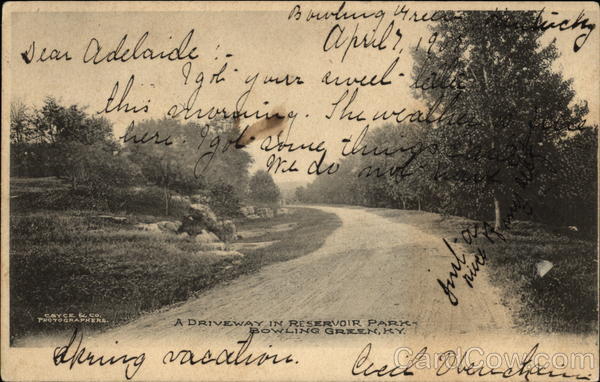 Bowling Green Kentucky
April 7, 19
Dear Adelaide :-
I got your sweet
this morning. The weather
here. I got some things
We do not have
Just as
nice
CAYCE & CO.
PHOTOGRAPHERS.
A DRIVEWAY IN RESERVOIR PARK-
BOWLING GREEN, KY.
Spring vacation. Cecil
CardCow.com